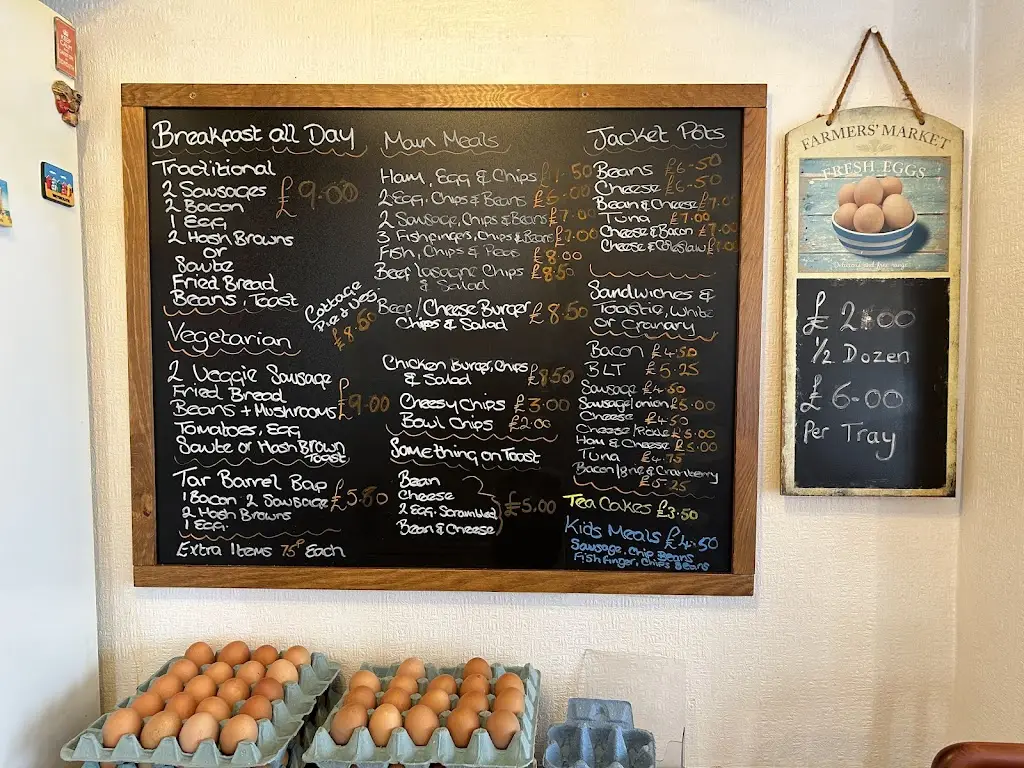 Breakfast all Day
Traditional
2 Sausages £9.00
2 Bacon
1 Egg
2 Hash Brows
or
Saute
Fried Bread
Beans, Toast
Vegetarian
2 Veggie Sausage
Fried Bread
Beans + Mushrooms £9.00
Tomatoes, Egg
Saute or Hash Brown
Toast
Tar Barrel Bap
1 Bacon 2 Sausage £5.80
2 Hash Browns
1 Egg.
Extra Items 75P Each
Cottage
Pie & Veg.
£8.50
Main Meals
Ham, Egg & Chips .50
2 Egg, Chips & Beans £6.00
2 Sausage, Chips & Beans £7.00
3 Fishfingers, Chips & Beans £7.00
Fish, Chips & Peas £8.00
Beef Lasagne Chips £8.50
& Salad
Beef / Cheese Burger £8.50
Chips & Salad
Chicken Burger, Chips £8.50
& Salad
Cheesy Chips £3.00
Bowl Chips £2.00
Something on Toast
Bean
Cheese
2 Egg. Scrambled £5.00
Bean & Cheese
Jacket Pots
Beans £6-50
Cheese £6-50
Bean & Cheese £7.0
Tuna £7.00
Cheese & Bacon £7.00
Cheese & Coleslaw
Sandwiches &
Toastie, White
Or Granary
Bacon £4.50
BLT £5.25
Sausage £4.50
Sausage/onion £5.00
Cheese £4.50
Cheese/ £5.00
Ham & Cheese £5.00
Tuna £4.75
Bacon/Brie & Cranberry
£5.25
Tea Cakes £3.50
Kids Meals £4.50
Sausage, Chip Beans
Fishfinger, Chips Beans
FARMERS' MARKET
FRESH EGGS
£2.00
1/2 Dozen
£6-00
Per Tray